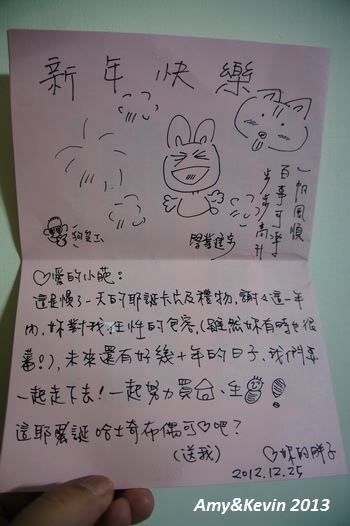 新年快樂
一帆風順
百事可樂
步步高升
狗屁工
學業進步
♡愛的小晚:
這是慢了一天的耶誕卡片及禮物,謝謝這一年
內,妳對我任性的包容,(雖然妳有時也很
壞!),未來還有好幾十年的日子,我們要
一起走下去!一起努力買台、生
這耶誕哈士奇布偶可♡吧?
(送我)
♡妳的胖子
2012.12.25
Amy&Kevin 2013